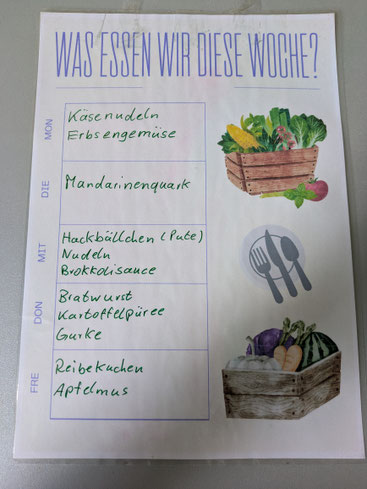 WAS ESSEN WIR DIESE WOCHE?
MON
Käsenudeln
Erbsengemüse
DIE
Mandarinenquark
MIT
Hackbällchen (Pute)
Nudeln
Brokkolisauce
DON
Bratwurst
Kartoffelpüree
Gurke
FRE
Reibekuchen
Apfelmus